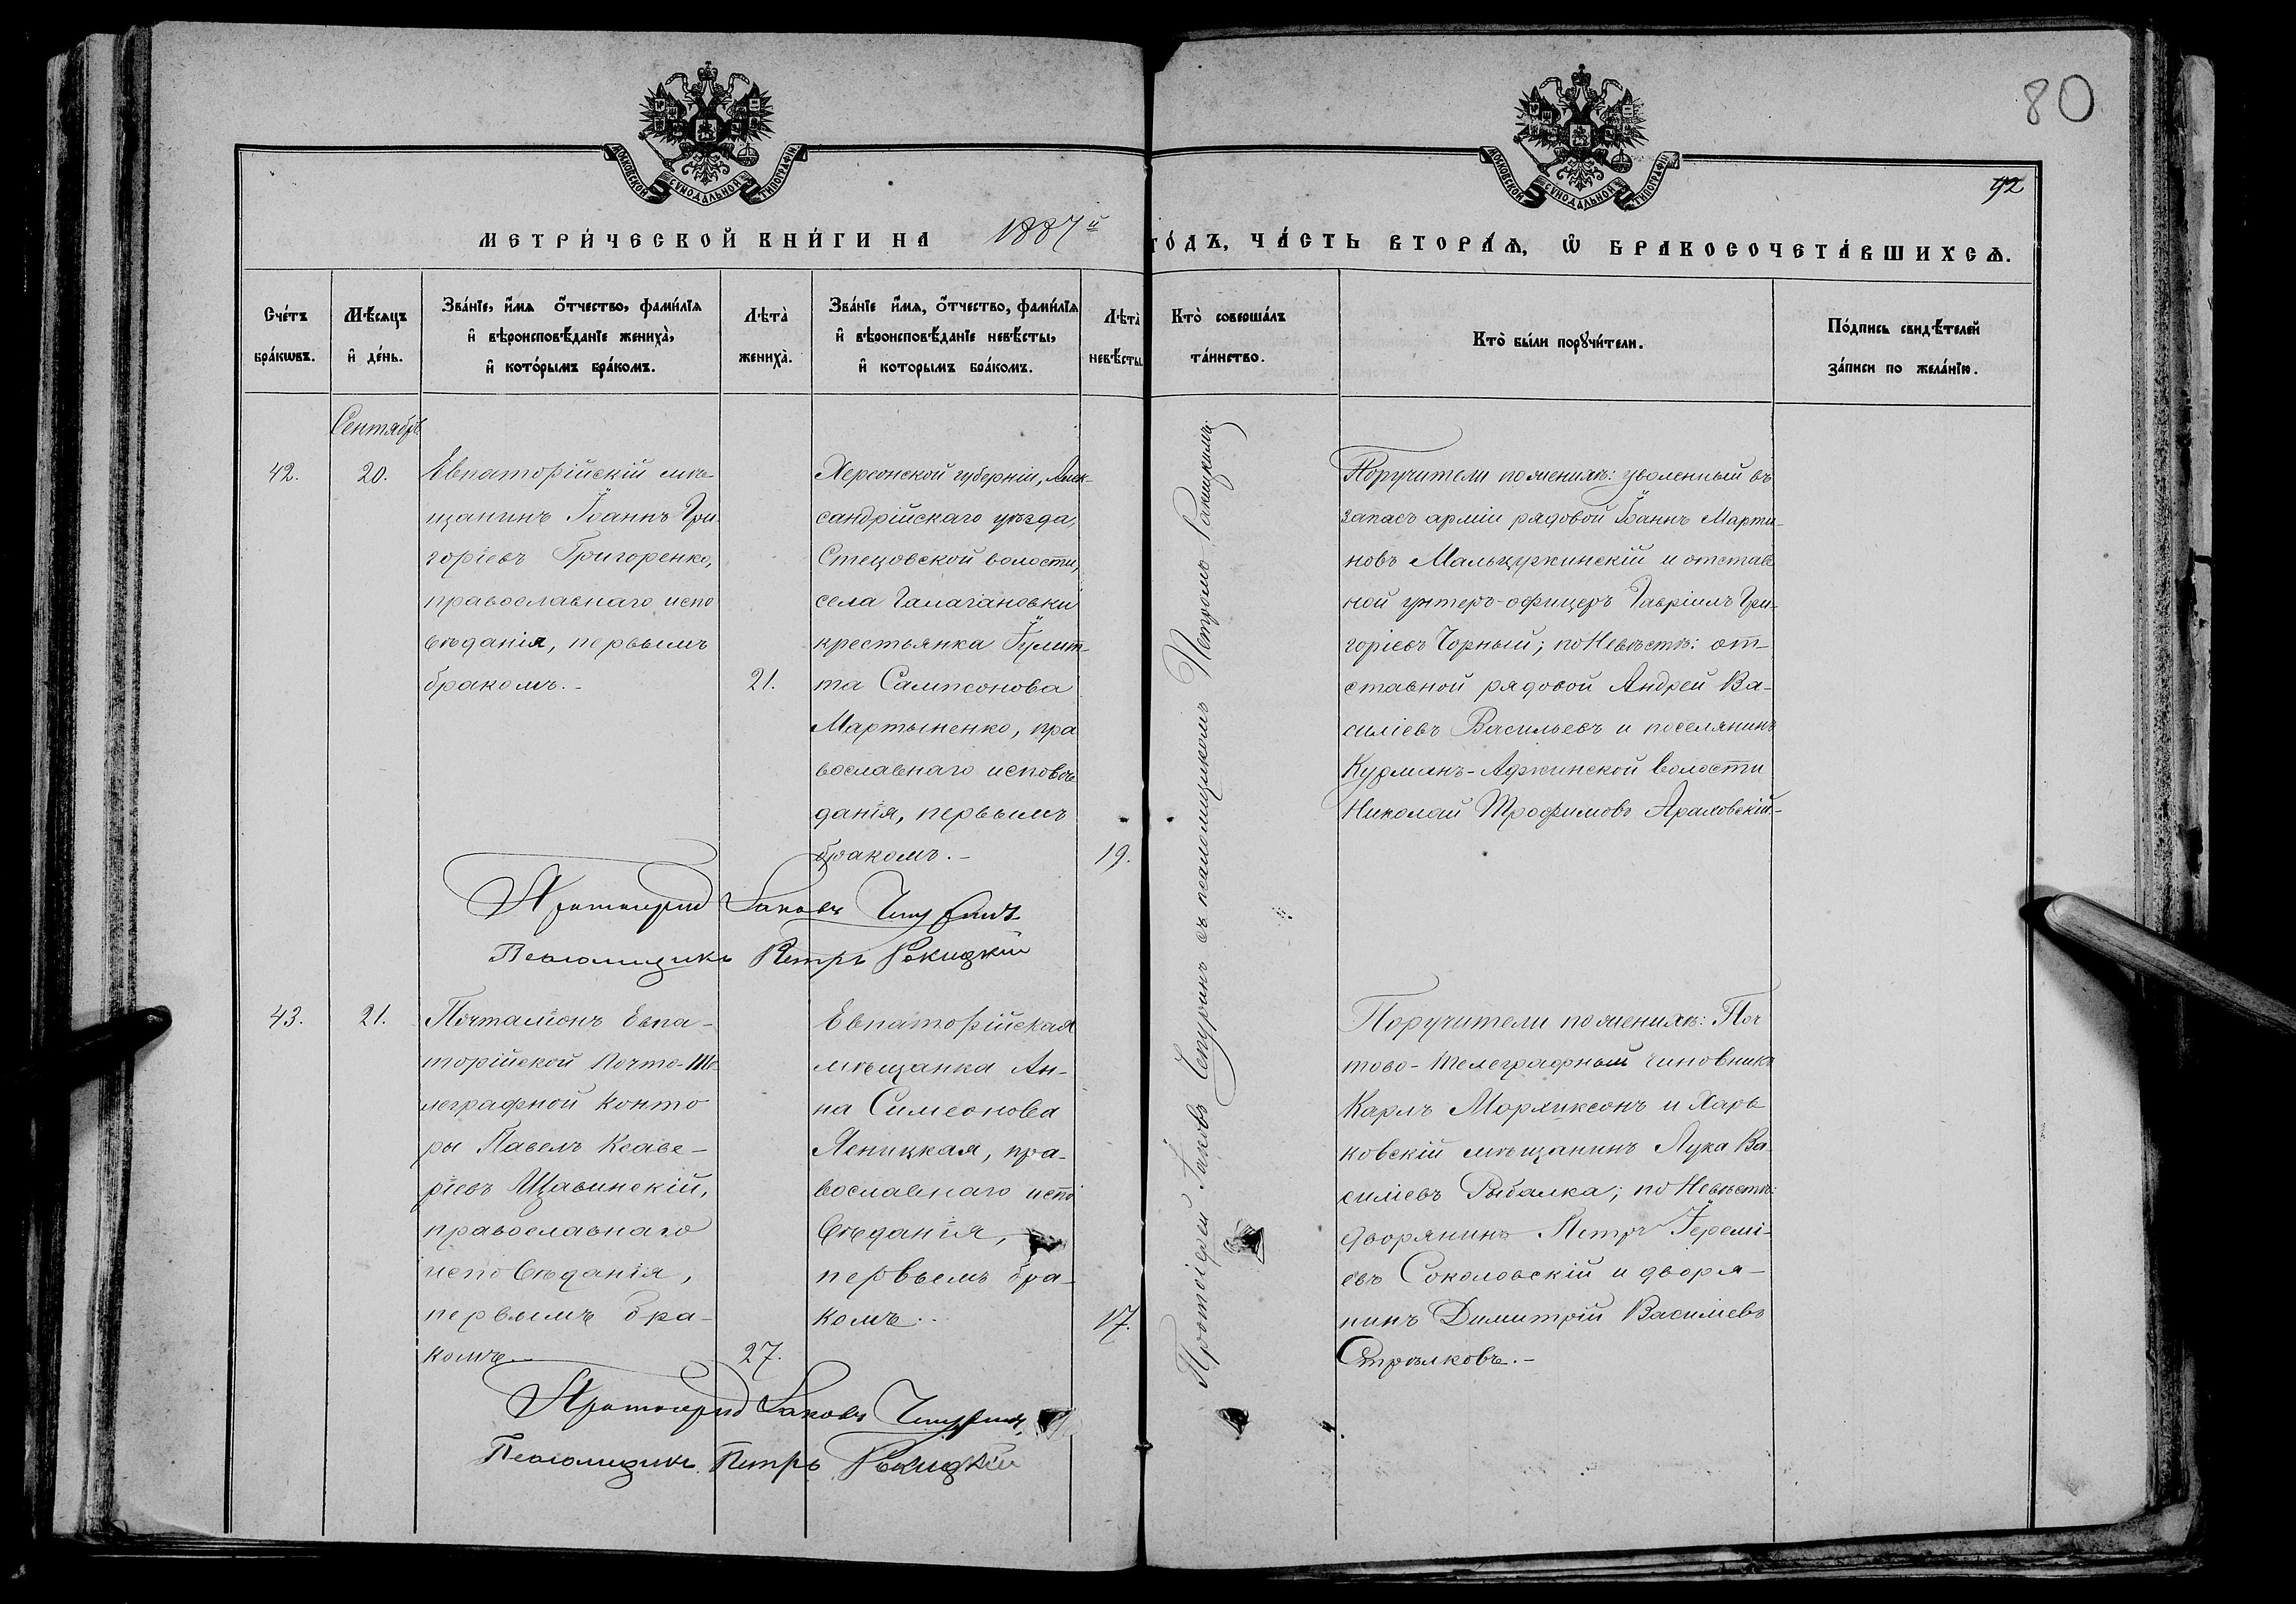 80
92
МОСКОВСКОЙ СѴНОДАЛЬНОЙ ТИПОГРАФІИ
МОСКОВСКОЙ СѴНОДАЛЬНОЙ ТИПОГРАФІИ
МЕТРИ́ЧЕСКОЙ КНИ́ГИ НА 1887й
ГО́ДЪ, ЧА́СТЬ ВТОРА́Ѧ, Ѽ БРАКОСОЧЕТА́ВШИХСѦ.
Сче́тъ
бра́кѡвъ.
Мѣ́сяцъ
и҆ де́нь.
Зва́нїе, и҆́мѧ ѻ҆́тчество, фами́лїѧ
и҆ вѣроисповѣ́данїе жениха̀,
и҆ кото́рымъ бра́комъ.
Лѣта̀
жениха̀.
Зва́нїе и҆́мѧ, ѻ҆́тчество, фами́лїѧ
и҆ вѣроисповѣ́данїе невѣ́сты,
и҆ которымъ бра́комъ.
Лѣта̀
невѣ́сты
Кто̀ соверша́лъ
та́инство.
Кто̀ бы́ли порꙋчи́тели.
По́дпись свидѣ́телей
за́писи по жела́нїю.
Сентябрь
42.
20.
Евпаторійскій мѣ-
щанинъ Іоаннъ Гри-
горіевъ Григоренко,
православнаго испо
вѣданія, первымъ
бракомъ.-
21.
Херсонской губерніи, Алек-
сандрійскаго уѣзда,
Стецовской волости,
села Галагановки
крестьянка Іулит-
та Сампсонова
Мартыненко, пра
вославнаго исповѣ
данія, первымъ
бракомъ.-
19.
Протоіерей Іаковъ Чепуринъ съ псаломщикомъ Петромъ Ракицкимъ
Поручители по женихѣ: уволенный въ
запасъ арміи рядовой Іоаннъ Марти-
новъ Мальцужинскій и отстав
ной унтеръ-офицеръ Гавріилъ Гри-
горіевъ Чорный; по Невѣстѣ: от-
ставной рядовой Андрей Ва-
силіевъ Васильевъ и поселянинъ
Курманъ-Аджинской волости
Николай Трофимовъ Араховскій.-
Протоіерей Іаковъ Чепуринъ
Псаломщикъ Петръ Рокицкій
43.
21.
Почталіонъ Евпа-
торійской Почто-Те-
леграфной Конто
ры Павелъ Ксаве-
ріевъ Щавинскій,
православнаго
исповѣданія,
первымъ бра-
комъ.
27.
Евпаторійская
мѣщанка Ан-
на Симеонова
Ясницкая, пра-
вославнаго испо
вѣданія,
первымъ бра-
комъ..
17.
Поручители по женихѣ: Поч
тово-Телеграфный чиновникъ
Карлъ Морликсонъ и Харь
ковскій мѣщанинъ Лука Ва-
силіевъ Рыбалка; по Невѣстѣ:
дворянинъ Петръ Іеремі-
евъ Соколовскій и дворя-
нинъ Димитрій Василіевъ
Стрѣлковъ.-
Протоіерей Іаковъ Чепуринъ
Псаломщикъ Петръ Рокицкій